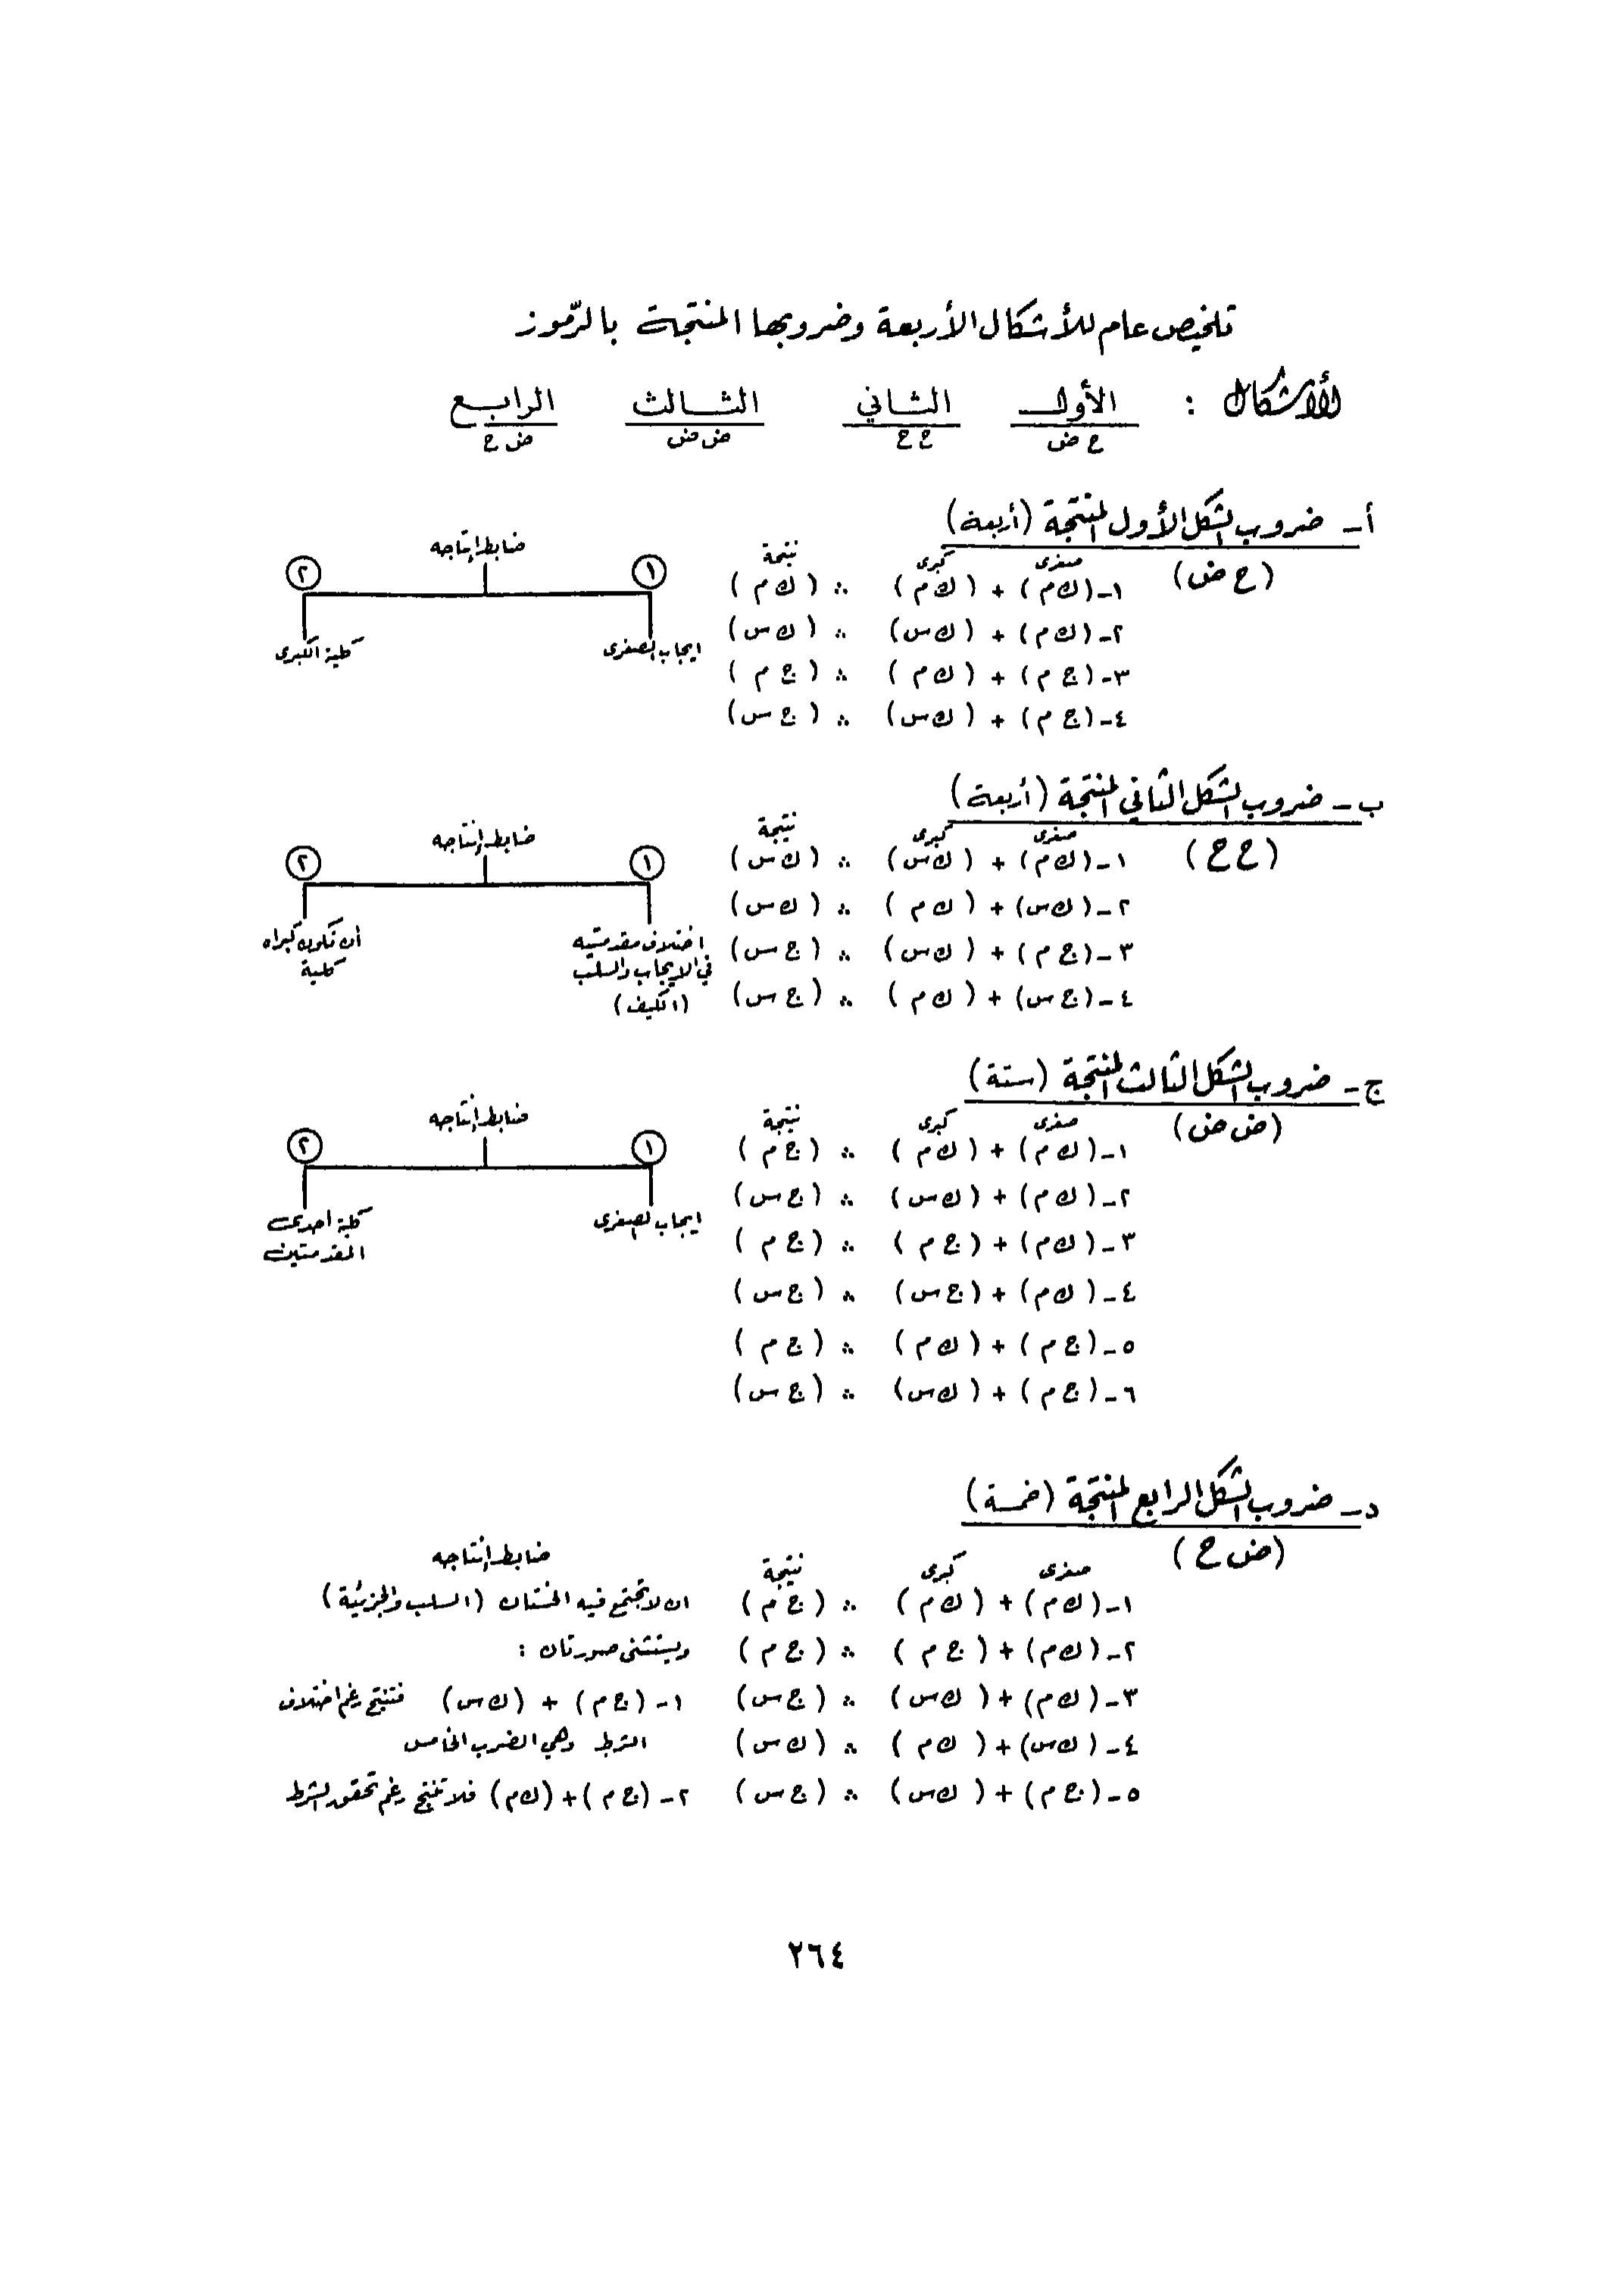 تلخيص عام للأشكال الأربعة وضروبها المنتجة بالرّموز
الأشكال : الأول الثاني الثالث الرابع
ح ض ح ح ض ض ض ح
أ- ضروب الشكل الأول المنتجة (أربعة)
(ح ض)
صغرى كبرى نتيجة
١- (ك م) + (ك م) ∴ (ك م)
٢- (ك م) + (ك س) ∴ (ك س)
٣- (ج م) + (ك م) ∴ (ج م)
٤- (ج م) + (ك س) ∴ (ج س)
ضابط إنتاجه
١ ٢
ايجاب الصغرى كلية الكبرى
ب- ضروب الشكل الثاني المنتجة (أربعة)
(ح ح)
صغرى كبرى نتيجة
١- (ك م) + (ك س) ∴ (ك س)
٢- (ك س) + (ك م) ∴ (ك س)
٣- (ج م) + (ك س) ∴ (ج س)
٤- (ج س) + (ك م) ∴ (ج س)
ضابط إنتاجه
١ ٢
اختلاف مقدمتيه
في الايجاب والسلب
(الكيف)
أن تكون كبراه
كلية
ج- ضروب الشكل الثالث المنتجة (ستة)
(ض ض)
صغرى كبرى نتيجة
١- (ك م) + (ك م) ∴ (ج م)
٢- (ك م) + (ك س) ∴ (ج س)
٣- (ك م) + (ج م) ∴ (ج م)
٤- (ك م) + (ج س) ∴ (ج س)
٥- (ج م) + (ك م) ∴ (ج م)
٦- (ج م) + (ك س) ∴ (ج س)
ضابط إنتاجه
١ ٢
ايجاب الصغرى
كلية احدى
المقدمتين
د- ضروب الشكل الرابع المنتجة (خمسة)
(ض ح)
صغرى كبرى نتيجة
١- (ك م) + (ك م) ∴ (ج م)
٢- (ك م) + (ج م) ∴ (ج م)
٣- (ك م) + (ك س) ∴ (ج س)
٤- (ك س) + (ك م) ∴ (ك س)
٥- (ج م) + (ك س) ∴ (ج س)
ضابط إنتاجه
ان لا تجتمع فيه الخستان (السلب والجزئية)
ويستثنى صورتان :
١- (ج م) + (ك س) فتنتج رغم اختلاف
الشرط وهي الضرب الخامس
٢- (ج م) + (ك م) فلا تنتج رغم تحقق الشرط
٢٦٤